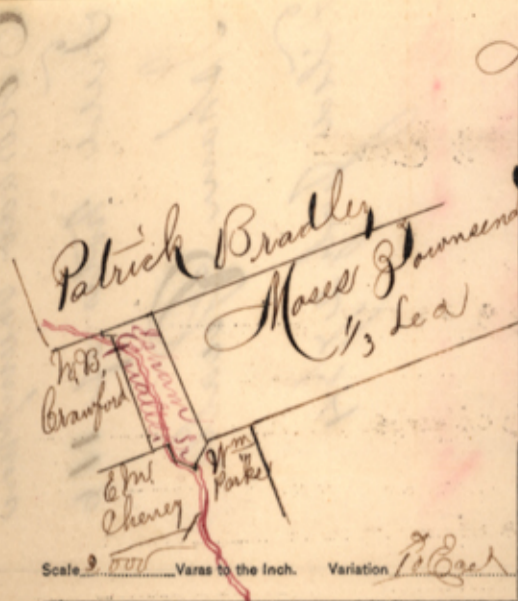 Patrick Bradley
Moses Townsend
1/3 Lea
W.B.
Crawford
Wm
Parker
E.W.
Cheney
Scale 2,000 Varas to the Inch. Variation 10 East